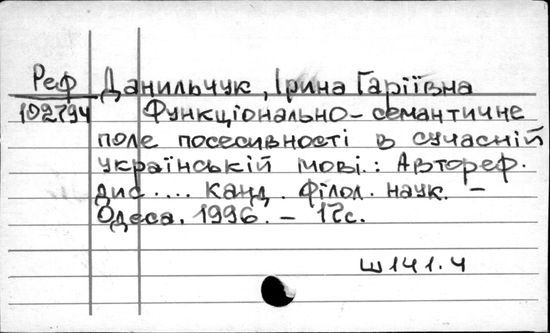 Реф Данильчук, Ірина Гаріївна
102794 Функціонально-семантичне
поле посесивності в сучасній
українській мові.: Автореф.
дис.... канд. філол. наук. –
Одеса. 1996. – 17с.
ш141.4